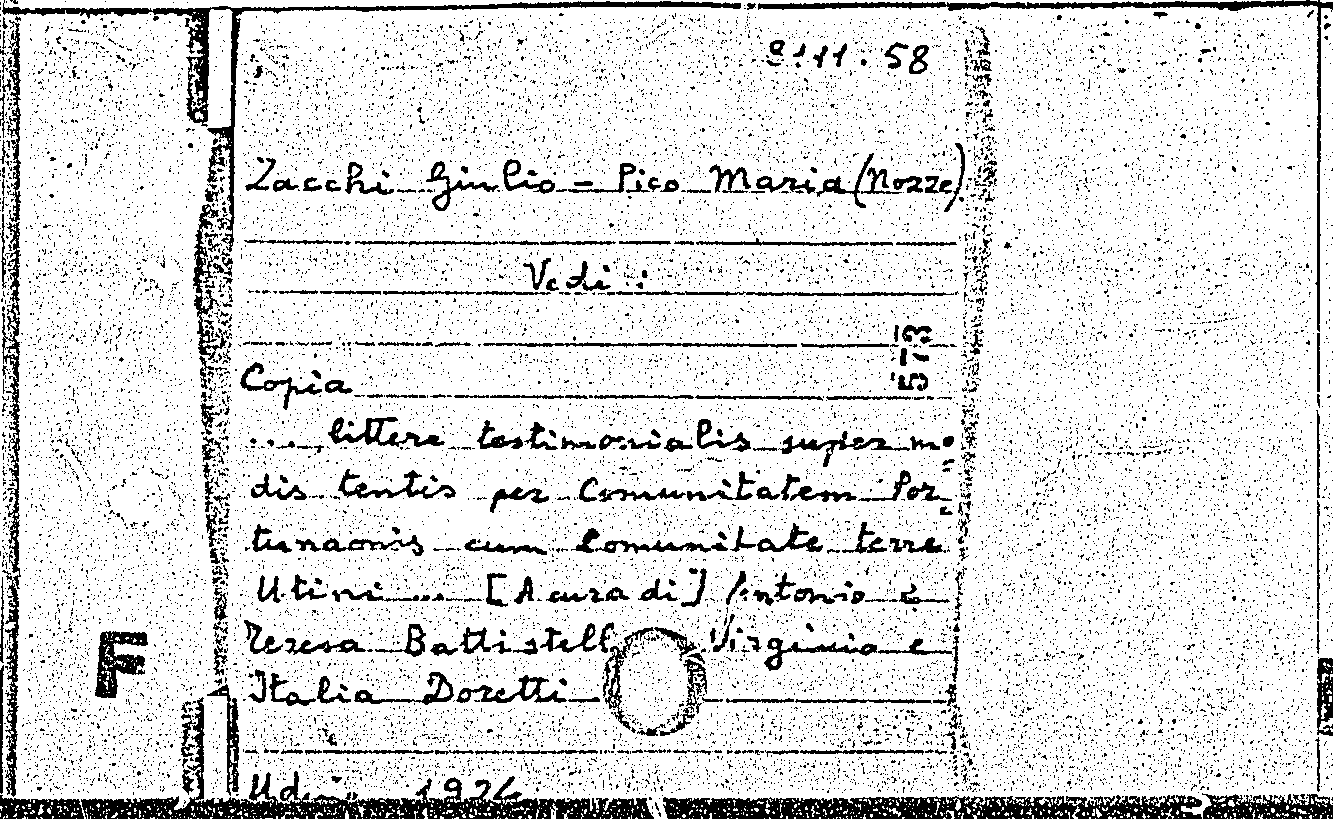 58
Zacchi Giulio - Pico Maria (Nozze)
Vedi :
573
Copia
..., littere testimonialis super mo
dis tentis per Comunitatem Por
tunaonis cum Comunitate terre
Utini ... [A cura di] Antonio e
Teresa Battistell Virginio e
Italia Doretti
F